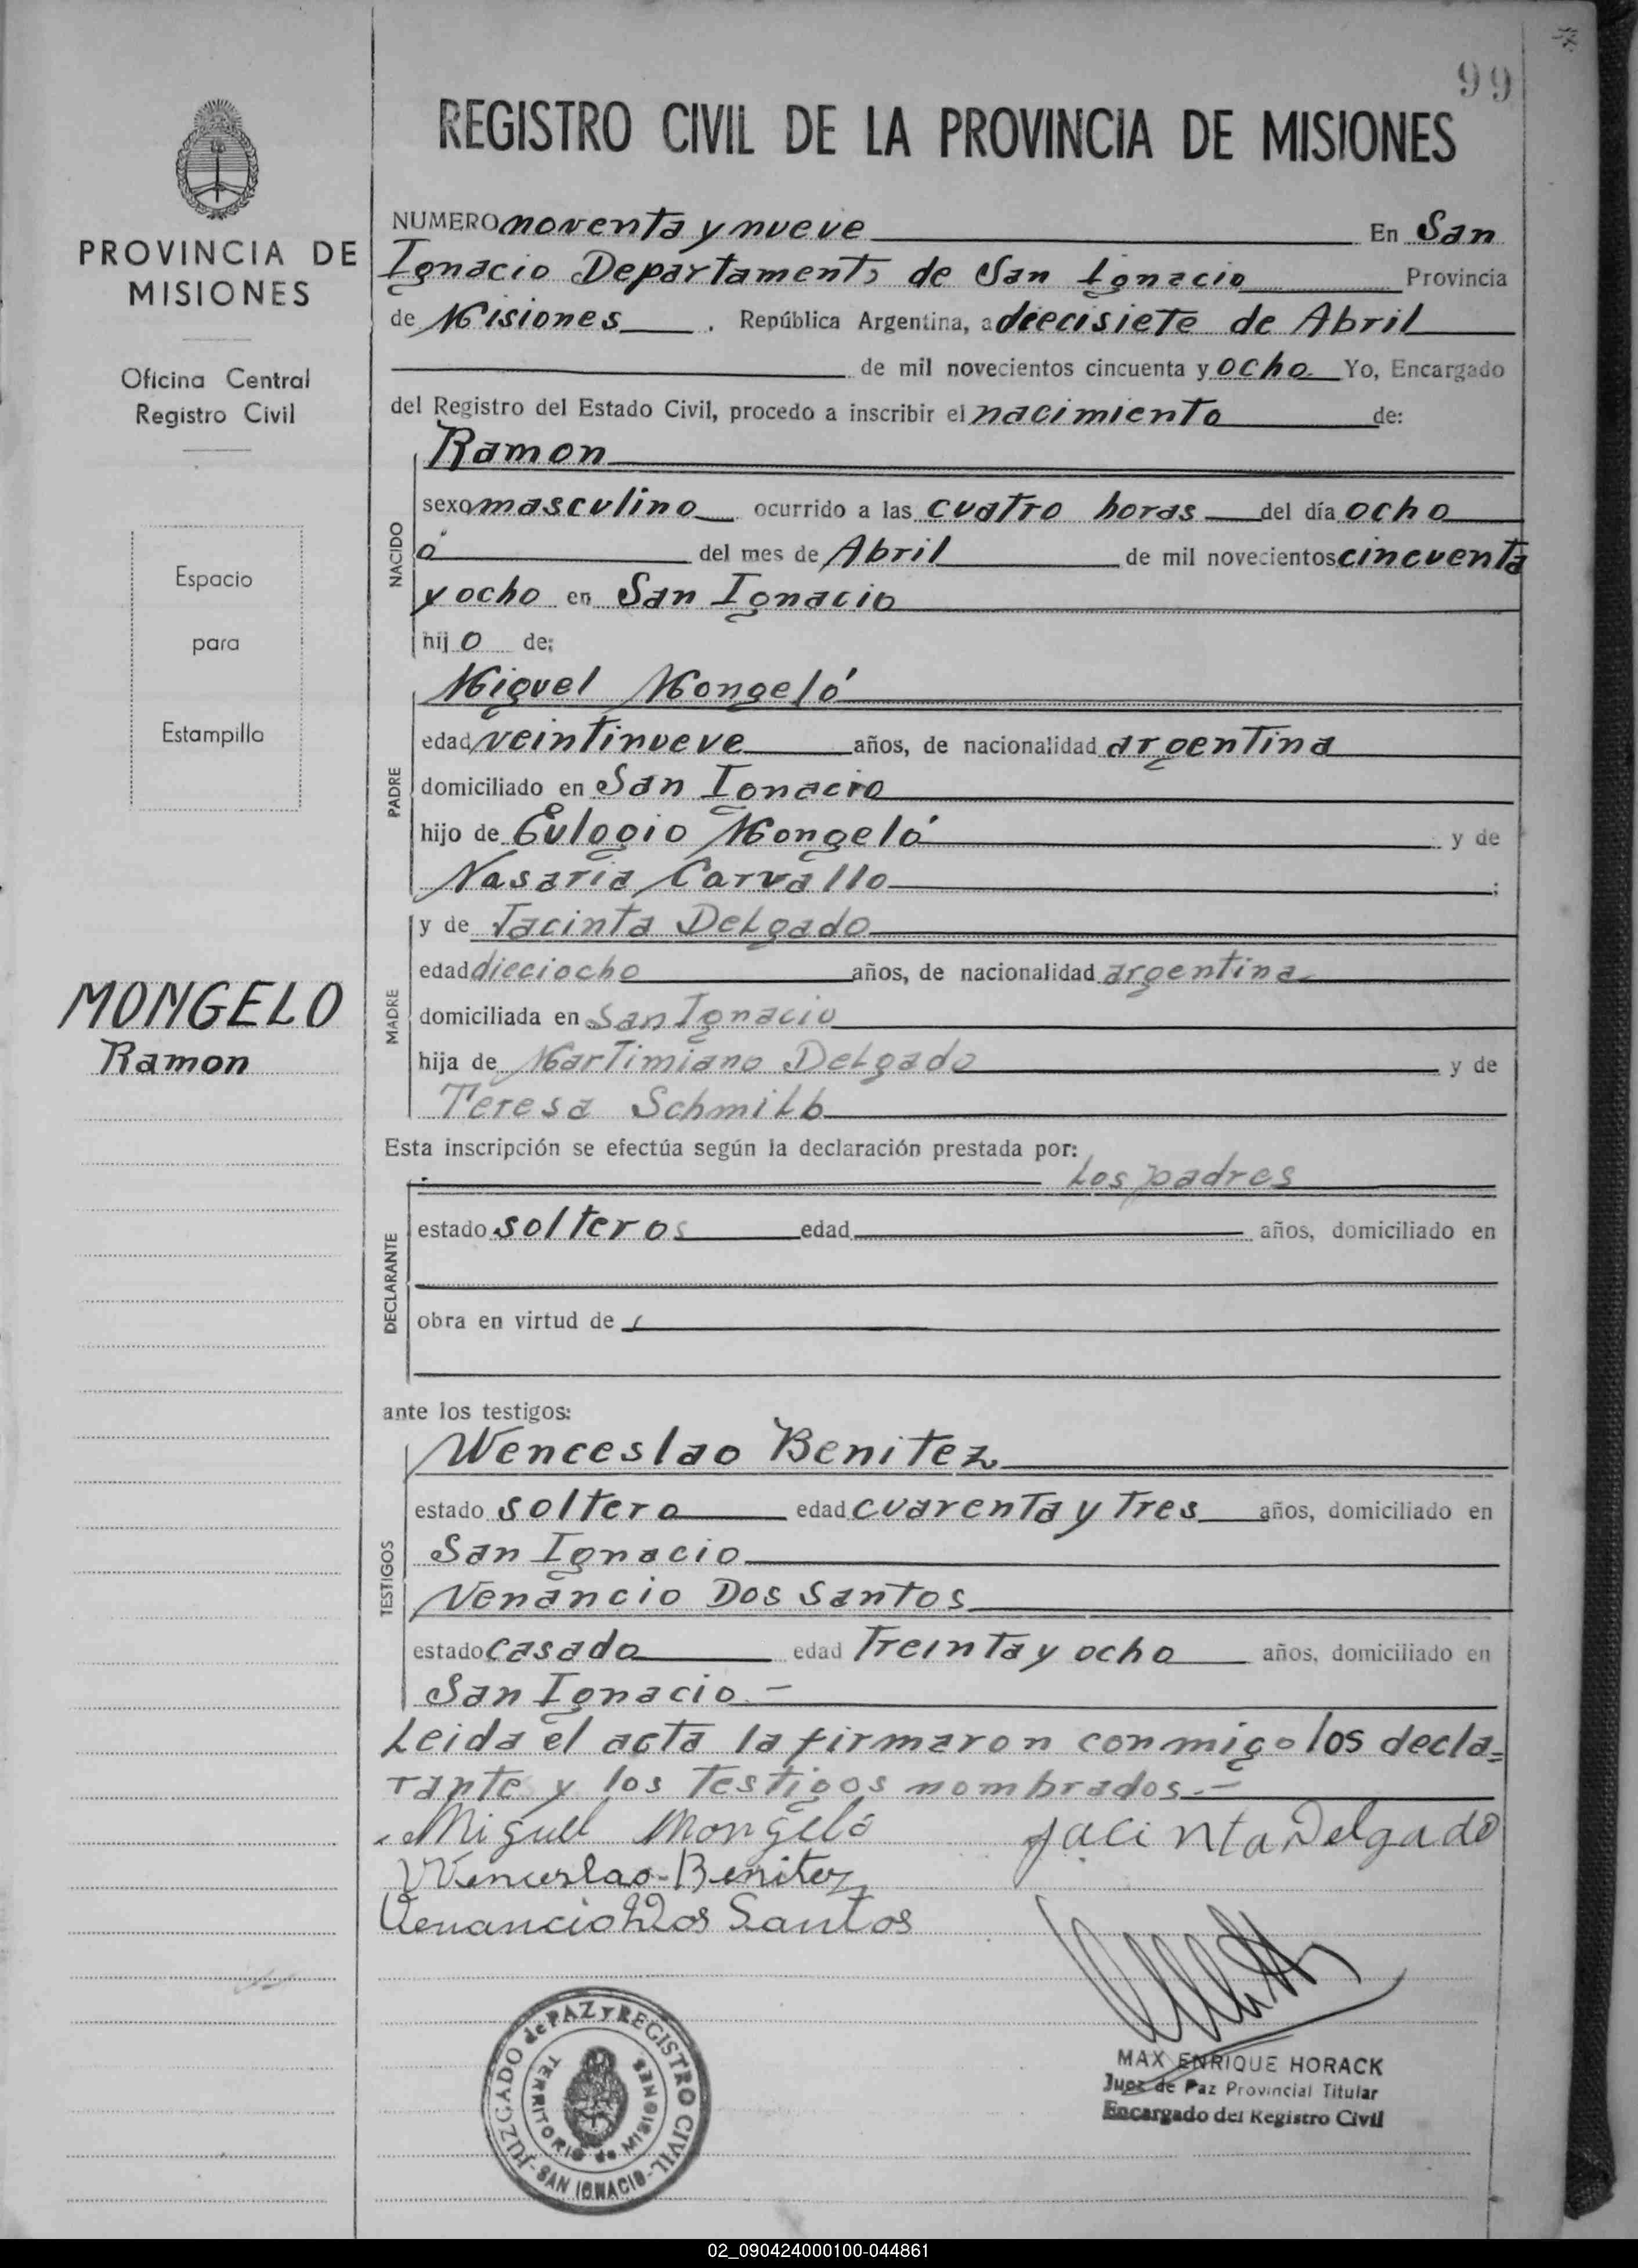 99
REGISTRO CIVIL DE LA PROVINCIA DE MISIONES
PROVINCIA DE
MISIONES
Oficina Central
Registro Civil
Espacio
para
Estampilla
MONGELO
Ramon
NUMERO noventa y nueve En San
Ignacio Departamento de San Ignacio Provincia
de Misiones. República Argentina, a diecisiete de Abril
de mil novecientos cincuenta y ocho. Yo, Encargado
del Registro del Estado Civil, procedo a inscribir el nacimiento de:
NACIDO
Ramon
sexo masculino ocurrido a las cuatro horas del día ocho
del mes de Abril de mil novecientos cincuenta
y ocho en San Ignacio
hijo de;
PADRE
Miguel Mongeló
edad veintinueve años, de nacionalidad argentina
domiciliado en San Ignacio
hijo de Eulogio Mongeló y de
Nasaria Carvallo;
MADRE
y de Jacinta Delgado
edad dieciocho años, de nacionalidad argentina
domiciliada en San Ignacio
hija de Martimiano Delgado y de
Teresa
Esta inscripción se efectúa según la declaración prestada por:
DECLARANTE
Los padres
estado solteros edad años, domiciliado en
obra en virtud de
ante los testigos:
TESTIGOS
Wenceslao Benitez
estado soltero edad cuarenta y tres años, domiciliado en
San Ignacio
Venancio Dos Santos
estado casado edad treinta y ocho años, domiciliado en
San Ignacio.-
Leida el acta la firmaron conmigo los decla=
rante y los testigos nombrados.-
Miguel Mongeló Jacinta Delgado
Wenceslao-Benitez
Venancio Dos Santos
JUZGADO de PAZ Y REGISTRO CIVIL
TERRITORIO de MISIONES
-SAN IGNACIO-
MAX ENRIQUE HORACK
Juez de Paz Provincial Titular
Encargado del Registro Civil
02_090424000100-044861